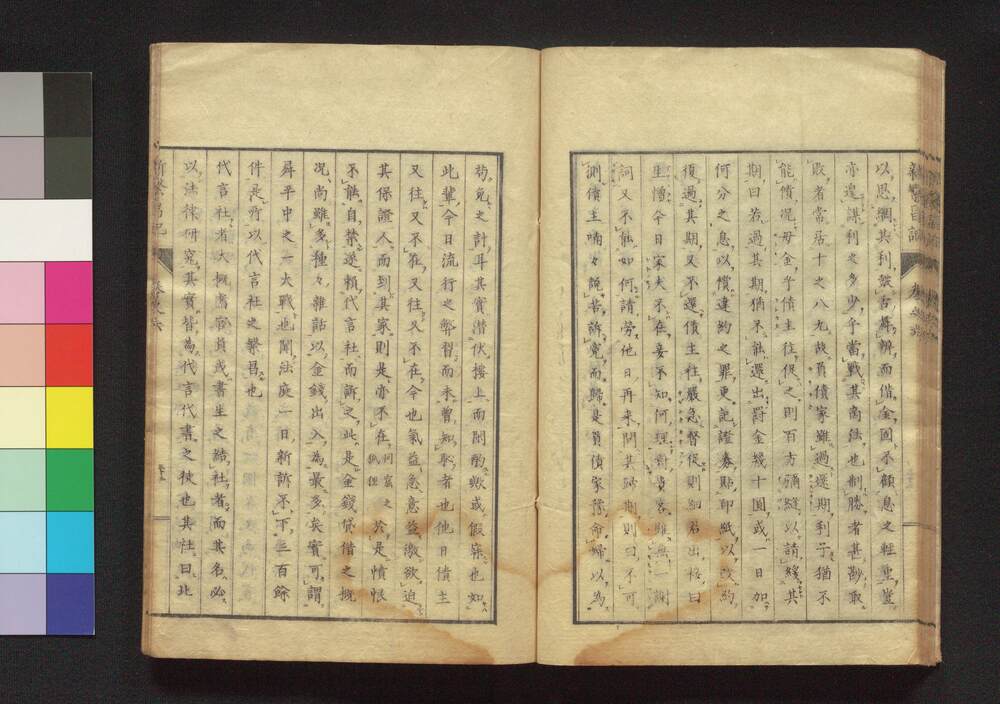 以恩綱其利從古籍辨而借金固不顧息之輕重豈
亦遑謀利之多少乎當戰其商法也制勝者甚尠取
敗者當居十之八九故負債家雖過還期利子猶不
能償況母金乎債主往促之則百方彌縫以請緩其
期曰若過其期猶不能還出罰金幾十圓或一日加
何分之息以償違約之罪更記證券貼印紙以改約
復過其期又不還債主往嚴急督促則細君出接曰
生憎今日家夫不在妾不知何理對責客雖無一謝
詞又不能如何請勞他日再來問其歸期則曰不可
測債主喃々說苦訴寃而歸是負債家豫命婦以為
苟免之計耳其實潛伏樓上而閑酌歟或假寐也如
此輩今日流行之弊習而未曾知恥者也他日債主
又往又不在又往又不在今也氣益急意益激欲迫
其保證人而到其家則是亦不在何富之祇但於是憤恨
不能自禁遂賴代言社而訴之此是金錢貸借之概
況尚雖多種々雜話以金錢出入為最多矣實可謂
昇平中之一大戰也聞法庭一日新訴不下三百餘
件是所以代言社之繁昌也
代言社者大概舊官員或書生之結社者而其名必
以法律研究其實皆為代言代書之徒也其社曰北